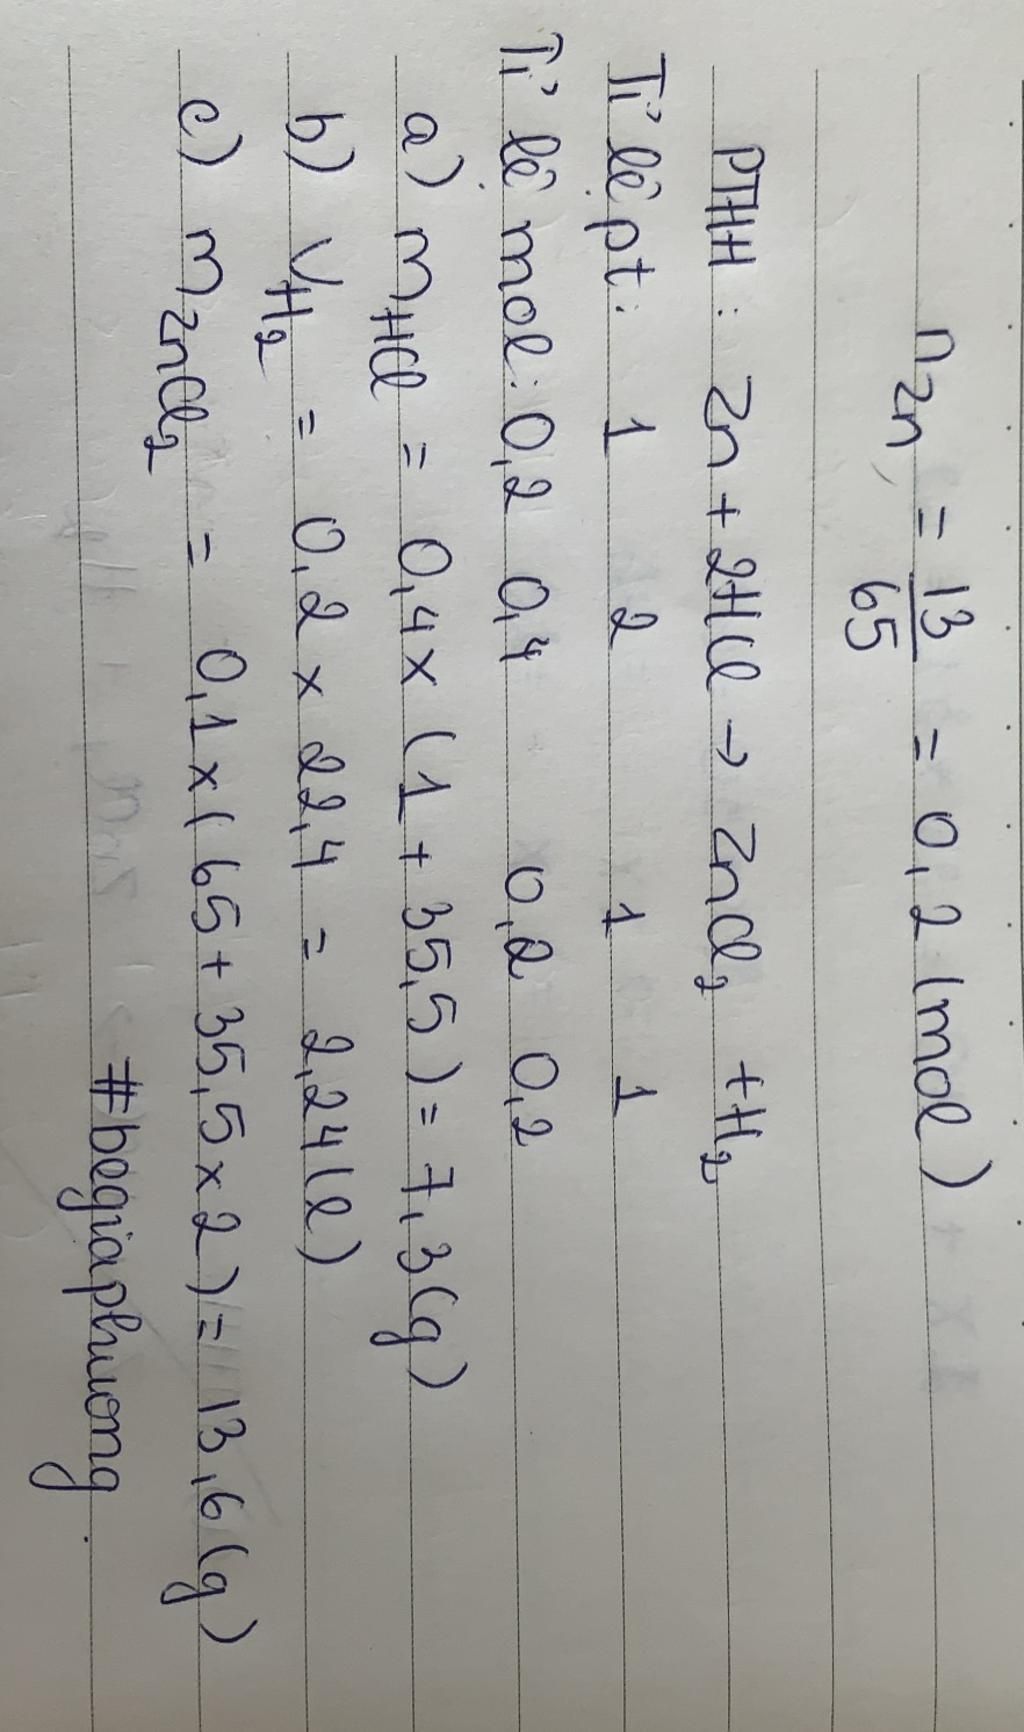 n Zn = 13/65 = 0,2 (mol)
PTHH : Zn + 2HCl → ZnCl2 + H2
Tỉ lệ pt : 1 2 1 1
Tỉ lệ mol : 0,2 0,4 0,2 0,2
a) mHCl = 0,4 x (1 + 35,5) = 7,3 (g)
b) VH2 = 0,2 x 22,4 = 2,24 (l)
c) mZnCl2 = 0,1 x (65 + 35,5 x 2) = 13,6 (g)
#begiaphuong.